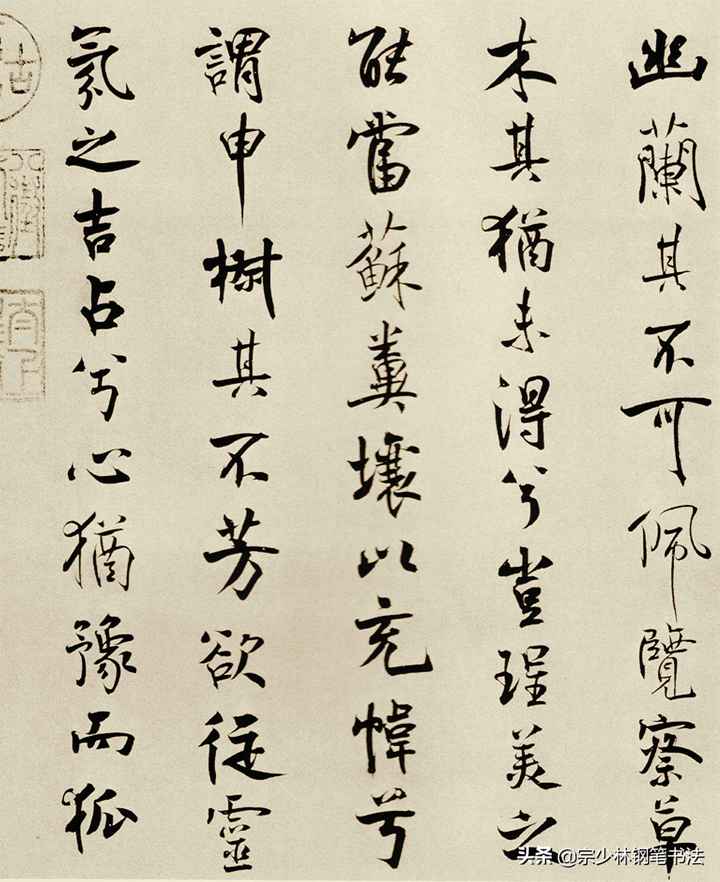 幽蘭其不可佩覽察草
木其猶未得兮豈珵美之
能當蘇糞壤以充幃兮
謂申椒其不芳欲從靈
氛之吉占兮心猶豫而狐
头条 @宗少林钢笔书法